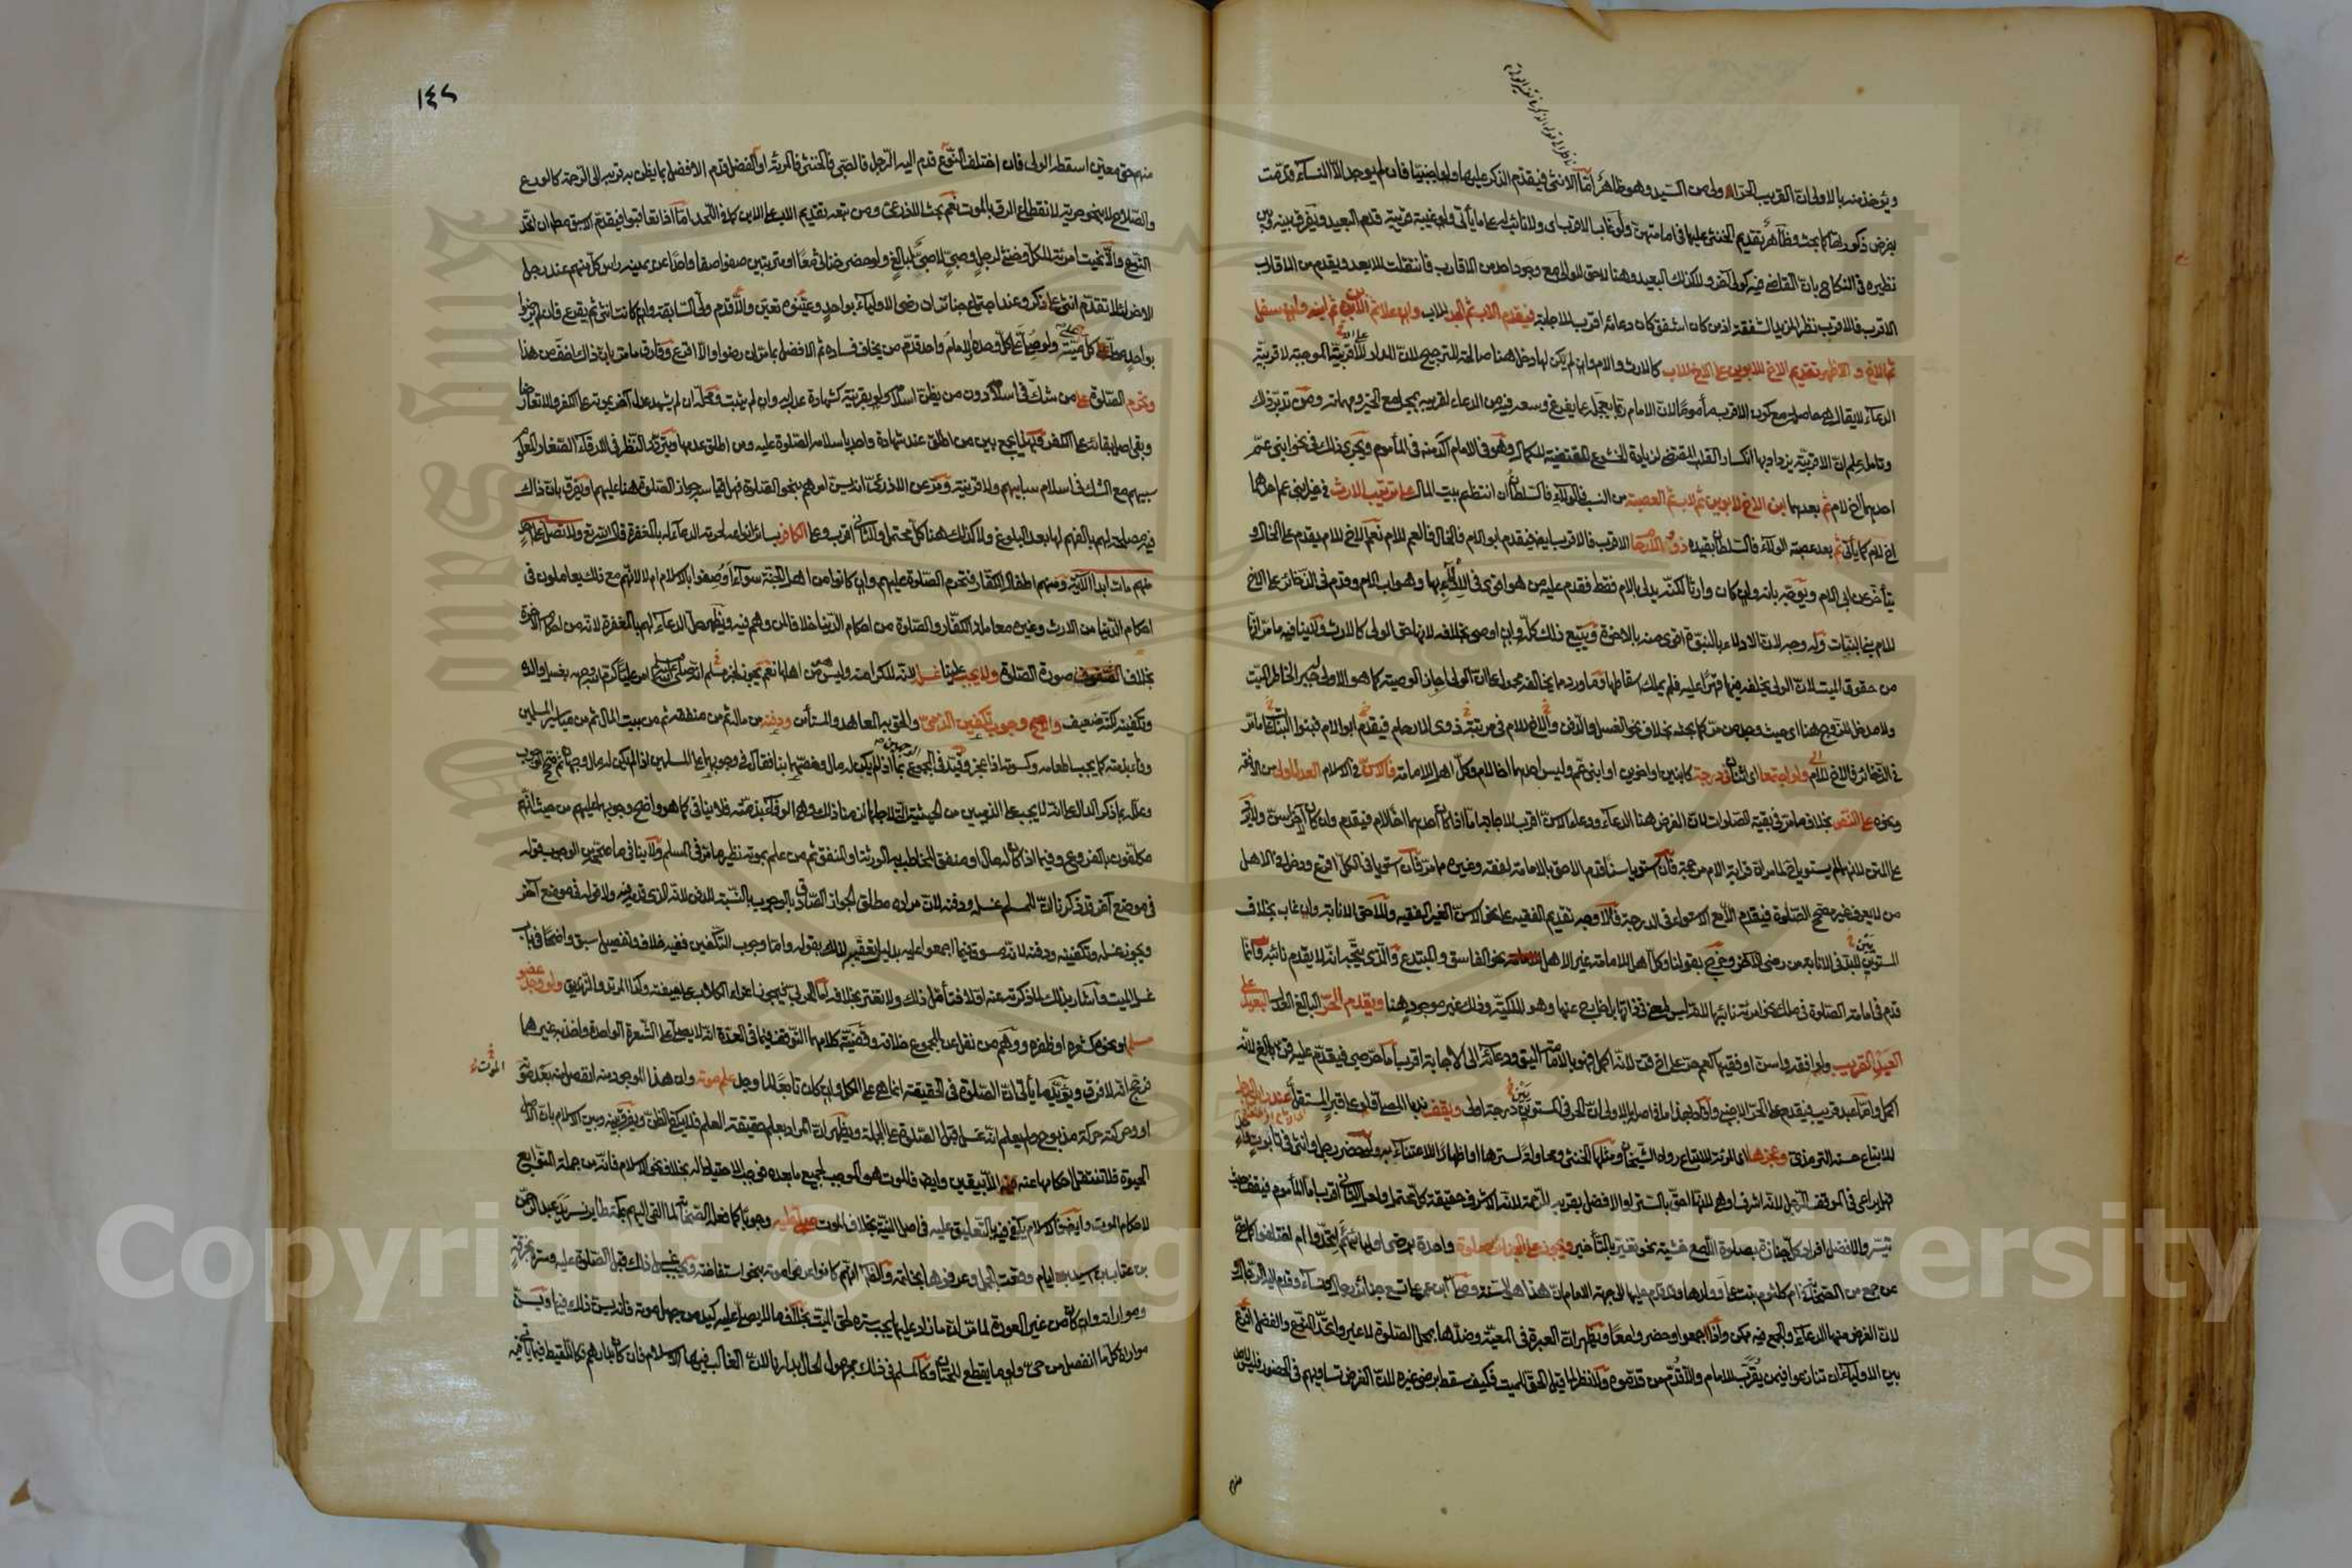 ناظر الا قوله
ويؤخذ منه بالاولى ان القريب الحر اولى من السيد وهو ظاهر اما الانثى فيقدم الذكر عليها ولو اجنبيا فان لم يوجد الا النساء قدمت
بفرض ذكورتها كما بحث وظاهر تقديم الخنثى عليها في امامتهن ولو غاب الاقرب اي ولا نائب له على ما يأتي ولو غيبة قريبة قدم البعيد ويفرق بينه وبين
نظيره في النكاح بان القاضي فيه كولي آخر ولا كذلك البعيد وهنا لا حق للوالي مع وجود احد من الاقارب فانتقلت للابعد ويقدم من الاقارب
الاقرب فالاقرب نظرا لمزيد الشفقة اذ من كان اشفق كان دعاؤه اقرب للاجابة فيقدم الاب ثم الجد للاب وان علا ثم الابن ثم ابنه وان سفل
ثم الاخ و الاظهر تقديم الاخ للابوين على الاخ للاب كالارث والام وان لم يكن لها دخل هنا صالحة للترجيح لان المدار على الاقربية الموجبة لاقربية
الدعاء لا يقال هي حاصلة مع كون الاقرب مأموما لان الامام ربما يعجله عما يفرغ وسعه فيه من الدعاء لقريبه بمجامع الخير ومهماته ومن تدبر ذلك
وتامله علم ان الاقربية يزداد بها انكسار القلب المقتضي لزيادة الخشوع المقتضية للكمال وهو في الامام آكد منه في المأموم ويجري ذلك في نحو ابني عم
احدهما اخ لام ثم بعدهما ابن الاخ لابوين ثم لاب ثم العصبة من النسب فالولاء فالسلطان ان انتظم بيت المال على ترتيب الارث في غير ابني عم احدهما
اخ لام كما يأتي ثم بعد عصبة الولاء فالسلطان بقيده ذوو الارحام الاقرب فالاقرب ايضا فيقدم ابو الام فالخال فالعم للام نعم الاخ للام يقدم على الخال و
يتأخر عن ابي الام ويوجه بانه وان كان وارثا لكنه يدلي بالام فقط فقدم عليه من هو اقوى في الادلاء بها وهو اب الام وقدم في الذخائر على الاخ
للام بني البنات وله وجه لان الادلاء بالبنوة اقوى منه بالاخوة ويتبع ذلك كله وان اوصى بخلافه لانها حق الولي كالارث ولا ينافيه ما مر انها
من حقوق الميت لان الولي يخلفه فيها قهرا عليه فلم يملك اسقاطها وما ورد مما يخالفه محمول على ان الولي اجاز الوصية كما هو الاولى جبرا لخاطر الميت
ولا مدخل للزوج هنا اي حيث وجد من مر كما بحث بخلاف نحو الغسل والدفن والاخ للام في مرتبة ذوي الارحام فيقدم ابو الام فبنو البنات كما مر
في الذخائر فالاخ للام ولو اجتمعا اي اثنان في درجة كابنين او اخوين او ابني عم وليس احدهما اخا لام وكل اهل للامامة فالاسن في الاسلام العدل اولى من الافقه
ونحوه على النص بخلاف ما مر في بقية الصلوات لان الغرض هنا الدعاء ودعاء الاسن اقرب للاجابة اما اذا كان احدهما اخا لام فيقدم وان كان الآخر اسن
على المتن لانهما لم يستويا اذ للمراة قرابة الام مرجحة فان استويا سنا قدم الاحق بالامامة لفقه وغيره مما مر فان استويا في الكل اقرع ودخل في الاهل
من لا يعرف غير مصحح الصلوة فيقدم الاسن مع الاستواء في الدرجة فالاوجه تقديم الفقيه على نحو الاسن الغير الفقيه وللاحق الانابة وان غاب بخلاف
المستويين لا بد في الانابة من رضى الآخر وخرج بقولنا وكل اهل للامامة غير الاهل نحو الفاسق والمبتدع والذي يتجه انه لا يقدم نائبه وانما
قدم في امامة الصلوة في ملك نحو امرأة نائبها لانه ليس لمعنى في ذاتها بل لخارج عنها وهو الملكية وذلك غير موجود هنا ويقدم الحر البالغ العدل البعيد على
العبد القريب ولو افقه واسن او فقيها كعم حر على اخ قن لانه اكمل فهو بالامامة اليق ودعاؤه الى الاجابة اقرب اما حر صبي فيقدم عليه قن بالغ لانه
اكمل واما عبد قريب فيقدم على الحر الاجنبي وافاد بهذا ما فاصله بالاولى ان الحر في المستويين درجة اولى ويقف ندبا المصلي ولو على قبر المستقل عند رأس الرجل
للاتباع حسنه الترمذي وعجزها اي المرأة للاتباع رواه الشيخان ومثلها الخنثى ومحاولة لسترها او اظهارا للاعتناء به ولو حضر رجل وانثى في تابوت واحد
فهل يراعى في الموقف الرجل لانه اشرف او هي لانها احق بالستر او الافضل بقربه للرحمة لانه الاشرف حقيقة كل محتمل ولعل الثاني اقرب اما المأموم فيقف حيث
تيسر والافضل افراد كل جنازة بصلوة الا مع خشية نحو تغير بالتأخير ويجوز على الجنائز صلوة واحدة برضى اوليائهم اتحدوا ام اختلفوا كما صح
عن جمع من الصحابة في ام كلثوم بنت علي وولدها وقدم عليها الى جهة الامام ان هذا هو السنة وصلى ابن عمر على تسع جنائز رجال ونساء وقدم اليه الرجال
لان الغرض منها الدعاء والجمع فيه ممكن واذا اجمعوا وحضروا معا ويظهر ان العبرة في المعية وضدها بمحل الصلوة لا غير واتحد النوع والفضل اقرع
بين الاولياء ان تنازعوا فيمن يقرب للامام والا قدم من قدموه ولا نظر لما قيل الحق للميت فكيف سقط برضى غيره لان الفرض تساويهم في الحضور فليس لاحد
منهم
١٤٢
منهم حق معين اسقطه الولي فان اختلف النوع قدم اليه الرجل فالصبي فالخنثى فالمرأة او الفضل قدم الافضل بما يظن به قربه الى الرحمة كالورع
والصلاح لا بنحو حرية لانقطاع الرق بالموت نعم بحث الاذرعي ومن تبعه تقديم الاب على الابن كما في اللحد اما اذا تعاقبوا فيقدم الاسبق مطلقا ان اتحد
النوع والا نحيت امرأة للكل وخنثى لرجل وصبي لا صبي لبالغ ولو حضر خناثى معا او مترتبين صفوا صفا واحدا عن يمينه راس كل منهم عند رجل
الاخر لئلا تقدم انثى على ذكر وعند اجتماع جنائز ان رضى الاولياء بواحد وعينوه تعين والا قدم ولي السابقة وان كانت انثى ثم يقرع فان لم يرضوا
بواحد صلى كل على ميته ولو صلى على كل وحده والامام واحد قدم من يخاف فساده ثم الافضل بما مر ان رضوا والا اقرع وفارق ما مر بان ذاك اخف من هذا
وتحرم الصلوة على من شك في اسلامه دون من يظن اسلامه ولو بقرينة كشهادة عدل به وان لم يثبت ومحله ان لم يشهد عدل آخر بموته على الكفر والا تعارضا
وبقي اصل بقائه على الكفر وبهذا يجمع بين من اطلق عند شهادة واحد باسلامه الصلوة عليه ومن اطلق عدمها ويتردد النظر في الارقاء الصغار المعلوم
سبيهم مع الشك في اسلام سابيهم ولا قرينة ومر عن الاذرعي انه يسن امرهم بنحو الصلوة فهل قياسه جواز الصلوة هنا عليهم او يفرق بان ذاك
فيه مصلحة لهم بالفهم لها بعد البلوغ ولا كذلك هنا كل محتمل والثاني اقرب وعلى الكافر بسائر انواعه لحرمة الدعاء له بالمغفرة قال تعالى ولا تصل على احد
منهم مات ابدا الآية ومنهم اطفال الكفار فتحرم الصلوة عليهم وان كانوا من اهل الجنة سواء وصفوا بالاسلام ام لا لانهم مع ذلك يعاملون في
احكام الدنيا من الارث وغيره معاملة الكفار والصلوة من احكام الدنيا خلافا لمن وهم فيه ويظهر حل الدعاء لهم بالمغفرة لانه من احكام الآخرة
بخلاف صورة الصلوة ولا يجب علينا غسله لانه للكرامة وليس هو من اهلها نعم يجوز لخبر مسلم انه صلى الله عليه وسلم امر عليا كرم الله وجهه بغسل والده
وتكفينه لكنه ضعيف والاصح وجوب تكفين الذمي والحق به المعاهد والمستأمن ودفنه من ماله ثم من منفقه ثم من بيت المال ثم من مياسير المسلمين
وفاء بذمته كما يجب اطعامه وكسوته اذا عجز وقيد في المجموع الوجهين بما اذا لم يكن له مال وخصهما بنا فقال في وجوبهما على المسلمين اذا لم يكن له مال وجهان ثم صحح الوجوب
وعلله بما ذكر الدال على انه لا يجب على الذميين من الحيثية التي لاجلها لزمنا ذلك وهي الوفاء بذمته فلا ينافي كما هو واضح وجوبها عليهم من حيث انهم
مكلفون بالفروع وفيما اذا كان له مال او منفق المخاطب به الورثة او المنفق ثم من علم بموته نظير ما مر في المسلم ولا ينافي ما صححه من الوجوب قوله
في موضع آخر قد ذكرنا ان للمسلم غسله ودفنه لان مراده مطلق الجواز الصادق بالوجوب بالنسبة للدفن لانه الذي قدمه ولا قوله في موضع آخر
ويجوز غسله وتكفينه ودفنه لانه مسوق فيما اجمعوا عليه بدليل تعقبه لذلك بقوله واما وجوب التكفين ففيه خلاف وتفصيل سبق واضحا في باب
غسل الميت واشار بذلك لما ذكرته عنه اولا فتأمل ذلك ولا تغتر بخلافه اما الحربي فيجوز اغراء الكلاب على جيفته وكذا المرتد والزنديق ولو وجد عضو
مسلم او نحوه كشعره او ظفره ووهم من نقل عن المجموع خلافه وقضية كلامهما التوقف فيما في العدة انه لا يصلى على الشعرة الواحدة واخذ به غيرهما
فرجح انه لا فرق ويؤيده ما يأتي ان الصلوة في الحقيقة انما هي على الكل وان كان تابعا لما وجد علم موته وان هذا الموجود منه انفصل منه بعد موته
الموت
او وحركته حركة مذبوح ولم يعلم انه غسل قبل الصلوة على الجملة ويظهر ان المراد بعلم حقيقة العلم فلا يكفي الظن ويفرق بينه وبين الاسلام بان الاصل
الحيوة فلا تنتقل احكامها عنه الا بيقين وايضا فالموت هو الموجب لجميع ما بعده فوجب الاحتياط له بخلاف نحو الاسلام فانه من جملة التوابع
لاحكام الموت وايضا فالاسلام يكفي فيه التعليق عليه في اصل النية بخلاف الموت صلى عليه وجوبا كما فعله الصحابة لما القى اليهم بمكة طاير نسر يد عبد الرحمن
بن عتاب بن اسيد ايام وقعت الجمل وعرفوها بخاتمه والظاهر انهم كانوا عرفوا موته بنحو استفاضة ويجب غسل ذلك قبل الصلوة عليه وستره بخرقة
ومواراته وان كان من غير العورة لما مر ان ما زاد عليها يجب ستره لحق الميت بخلاف ما لا يصلى عليه كيد من جهل موته فانه يسن ذلك فيها ويسن
مواراة كل ما انفصل من حي ولو ما يقطع للختان وكالمسلم في ذلك مجهول الحال بدارنا لان الغالب فيها الاسلام فان كان بدارهم فكاللقيط فيما يأتي فيه